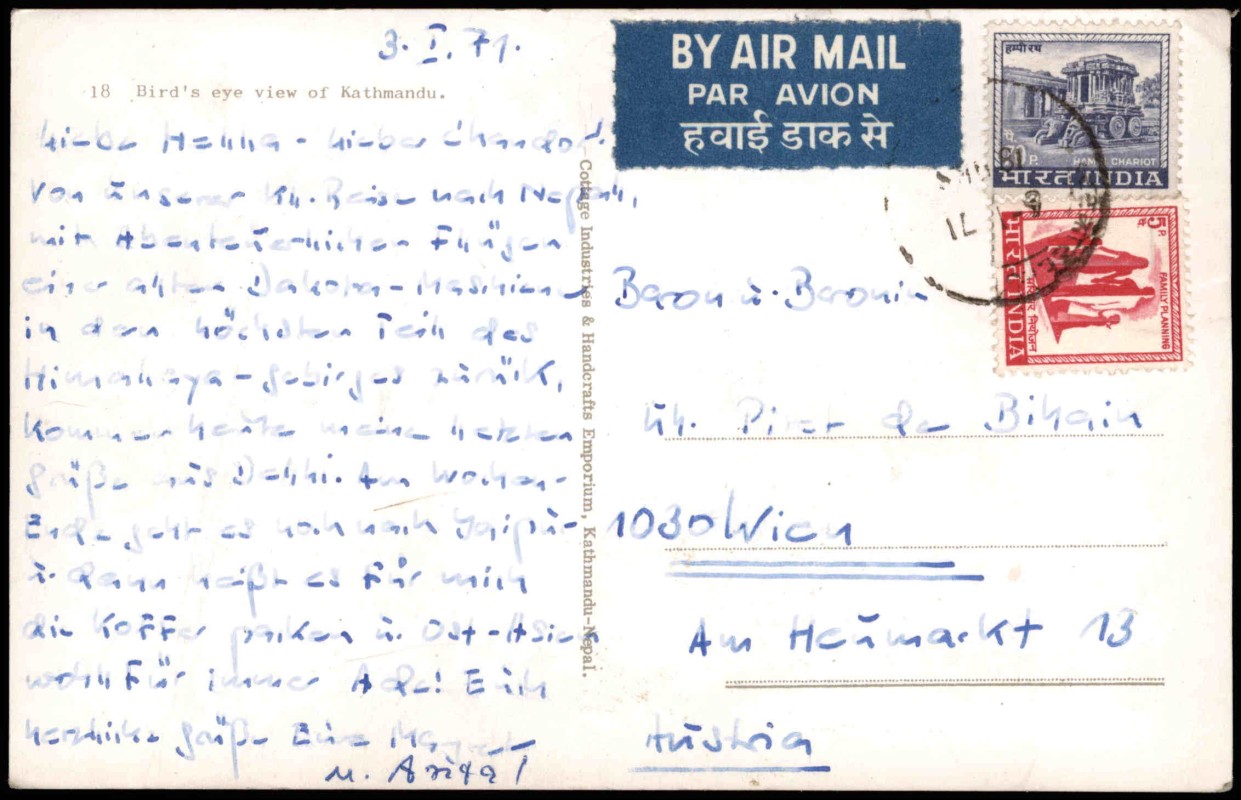 3. I. 71.
18 Bird's eye view of Kathmandu.
Liebe Hanna - Lieber
Von unserer Kl. Reise nach Nepal,
mit Abenteuerlichen Flügen
einer alten Dakota-Maschiene
in den höchsten Teil des
Himalaya-gebirges zurück,
kommen heute meine letzten
grüße aus Delhi. Am Wochen-
Ende geht es noch nach Jaipur
u. dann heißt es für mich
die Koffer packen u. Ost-Asien
wohl Für immer Ade! Euch
herzliche grüße Eure
u.
Cottage Industries & Handcrafts Emporium, Kathmandu-Nepal.
BY AIR MAIL
PAR AVION
हवाई डाक से
हम्पी रथ
HAMPI CHARIOT
भारत INDIA
5 P.
FAMILY PLANNING
परिवार नियोजन
भारत INDIA
Baron u. Baronin
de
1030 Wien
Am Heumarkt 13
Austria